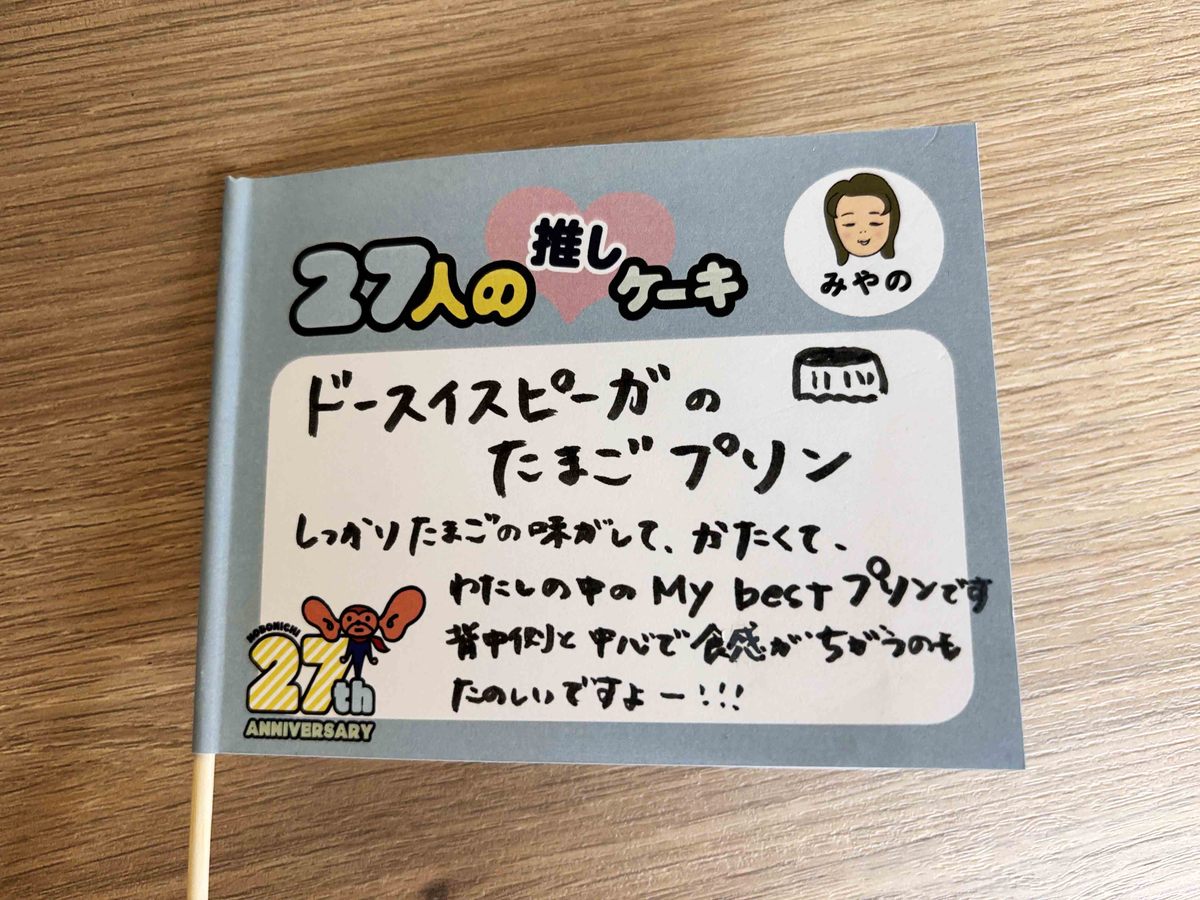 27人の推しケーキ
みやの
ドースイスピーガの
たまごプリン
しっかりたまごの味がして、かたくて、
わたしの中のMy bestプリンです
背中側と中心で食感がちがうのも
たのしいですよー!!!
HOBONICHI
27th
ANNIVERSARY